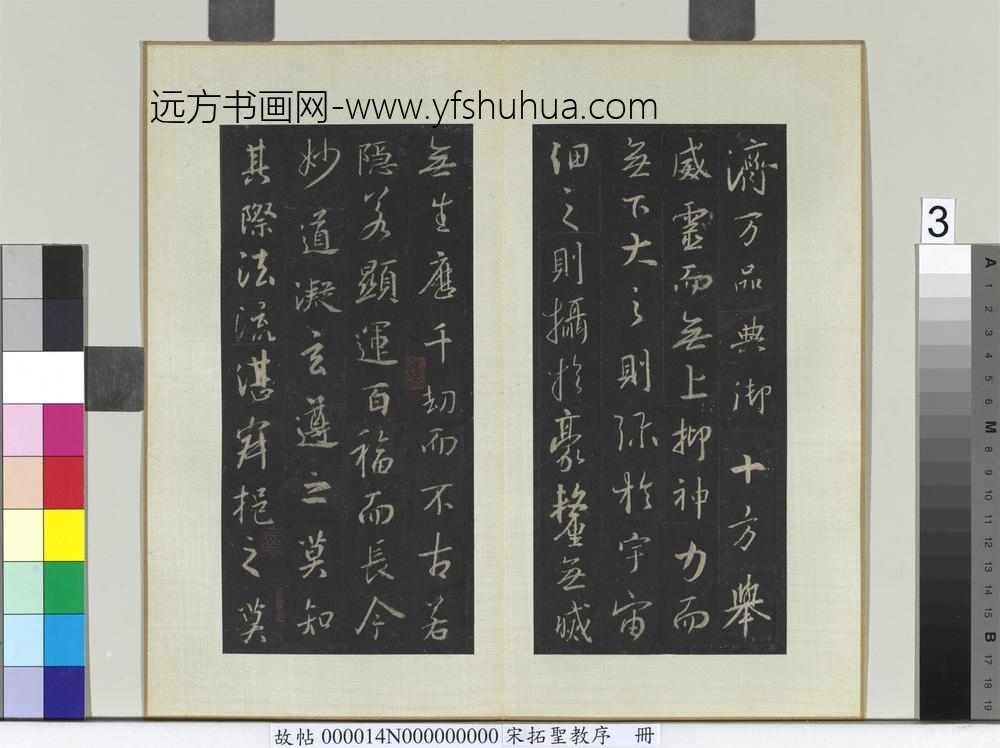 远方书画网-www.yfshuhua.com
濟万品典御十方舉
威靈而無上抑神力而
無下大之則弥於宇宙
細之則攝於豪釐無滅
無生歷千劫而不古若
隱若顯運百福而長今
妙道凝玄遵之莫知
其際法流湛寂挹之莫
3
A
1
2
3
4
5
6
M
8
9
10
11
12
13
14
15
B
17
18
19
故帖 000014N000000000 宋拓聖教序 冊